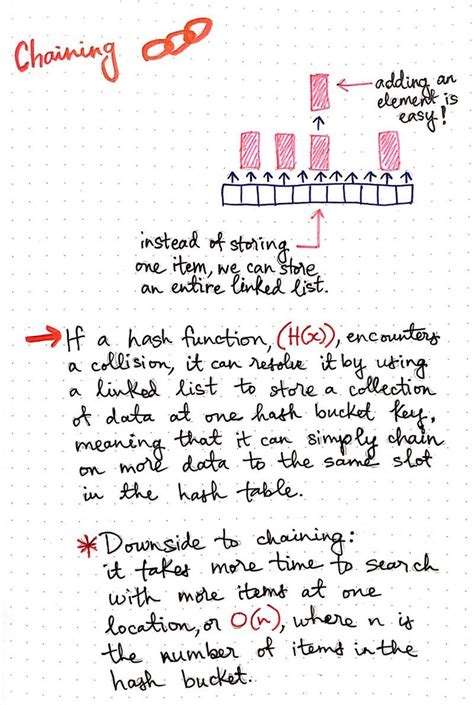 Chaining
adding an
element is
easy!
instead of storing
one item, we can store
an entire linked list.
If a hash function, (H(x)), encounters
a collision, it can resolve it by using
a linked list to store a collection
of data at one hash bucket key,
meaning that it can simply chain
on more data to the same slot
in the hash table.
* Downside to chaining:
it takes more time to search
with more items at one
location, or O(n), where n is
the number of items in the
hash bucket.